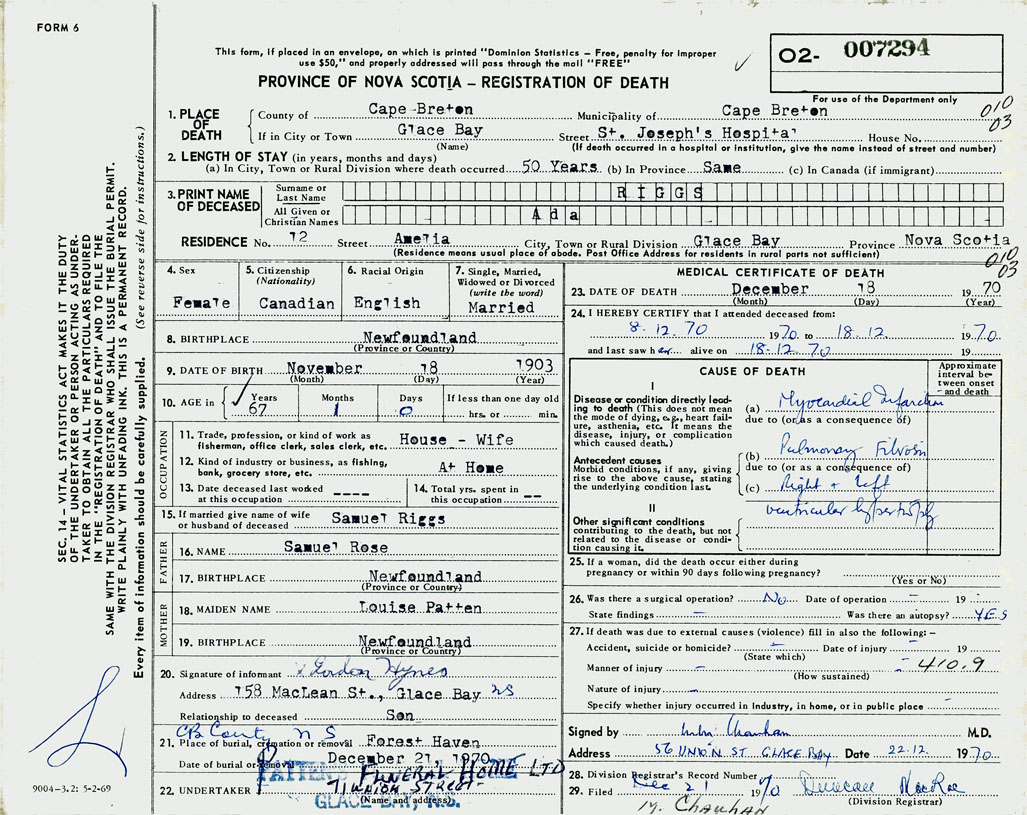 FORM 6
This form, if placed in an envelope, on which is printed "Dominion Statistics – Free, penalty for improper
use $50," and properly addressed will pass through the mail "FREE"
O2- 007294
PROVINCE OF NOVA SCOTIA – REGISTRATION OF DEATH
For use of the Department only
010
03
1. PLACE OF DEATH
County of Cape Breton Municipality of Cape Breton
If in City or Town Glace Bay Street St. Joseph's Hospital House No.
(Name) (If death occurred in a hospital or institution, give the name instead of street and number)
2. LENGTH OF STAY (in years, months and days)
(a) In City, Town or Rural Division where death occurred 50 Years (b) In Province Same (c) In Canada (if immigrant)
3. PRINT NAME OF DECEASED
Surname or Last Name RIGGS
All Given or Christian Names Ada
RESIDENCE No. 12 Street Amelia City, Town or Rural Division Glace Bay Province Nova Scotia
(Residence means usual place of abode. Post Office Address for residents in rural parts not sufficient)
010
03
4. Sex
Female
5. Citizenship
(Nationality)
Canadian
6. Racial Origin
English
7. Single, Married,
Widowed or Divorced
(write the word)
Married
8. BIRTHPLACE Newfoundland
(Province or Country)
9. DATE OF BIRTH November 18 1903
(Month) (Day) (Year)
10. AGE in Years 67 Months 1 Days 0 If less than one day old
hrs. or min.
OCCUPATION
11. Trade, profession, or kind of work as
fisherman, office clerk, sales clerk, etc. House - Wife
12. Kind of industry or business, as fishing,
bank, grocery store, etc. At Home
13. Date deceased last worked
at this occupation ----
14. Total yrs. spent in
this occupation --
15. If married give name of wife
or husband of deceased Samuel Riggs
FATHER
16. NAME Samuel Rose
17. BIRTHPLACE Newfoundland
(Province or Country)
MOTHER
18. MAIDEN NAME Louise Patten
19. BIRTHPLACE Newfoundland
(Province or Country)
20. Signature of informant x Gordon Hynes
Address 158 MacLean St., Glace Bay NS
Relationship to deceased Son
CB County N S
21. Place of burial, cremation or removal Forest Haven
Date of burial or removal December 21, 1970
PATTEN FUNERAL HOME LTD
71 UNION STREET
22. UNDERTAKER
(Name and address)
GLACE BAY, N.S.
MEDICAL CERTIFICATE OF DEATH
23. DATE OF DEATH December 18 1970
(Month) (Day) (Year)
24. I HEREBY CERTIFY that I attended deceased from:
8-12.70 1970 to 18.12. 1970.
and last saw her alive on 18-12.70 19
CAUSE OF DEATH
Approximate interval between onset and death
I
Disease or condition directly leading to death (This does not
mean the mode of dying, e.g., heart failure, asthenia, etc. It means the
disease, injury, or complication
which caused death.)
(a) Myocardial Infarction
due to (or as a consequence of)
Antecedent causes
Morbid conditions, if any, giving
rise to the above cause, stating
the underlying condition last.
(b) Pulmonary Fibrosis
due to (or as a consequence of)
(c) Right + left
ventricular hypertrophy
II
Other significant conditions
contributing to the death, but not
related to the disease or condition causing it.
25. If a woman, did the death occur either during
pregnancy or within 90 days following pregnancy?
(Yes or No)
26. Was there a surgical operation? No Date of operation – 19
State findings – Was there an autopsy? YES
27. If death was due to external causes (violence) fill in also the following: –
Accident, suicide or homicide? – Date of injury – 19
(State which)
Manner of injury – – 410.9
(How sustained)
Nature of injury –
Specify whether injury occurred in industry, in home, or in public place
Signed by Chauhan M.D.
Address 56 UNION ST GLACE BAY. Date 22.12. 1970.
28. Division Registrar's Record Number
29. Filed Dec 21 1970 Duncan MacRae
(Division Registrar)
M. Chauhan
SEC. 14 – VITAL STATISTICS ACT MAKES IT THE DUTY
OF THE UNDERTAKER OR PERSON ACTING AS UNDERTAKER TO OBTAIN ALL THE PARTICULARS REQUIRED
IN THE "REGISTRATION OF DEATH" AND TO FILE THE
SAME WITH THE DIVISION REGISTRAR WHO SHALL ISSUE THE BURIAL PERMIT.
WRITE PLAINLY WITH UNFADING INK. THIS IS A PERMANENT RECORD.
Every item of information should be carefully supplied. (See reverse side for instructions.)
9004–3.2: 5-2-69